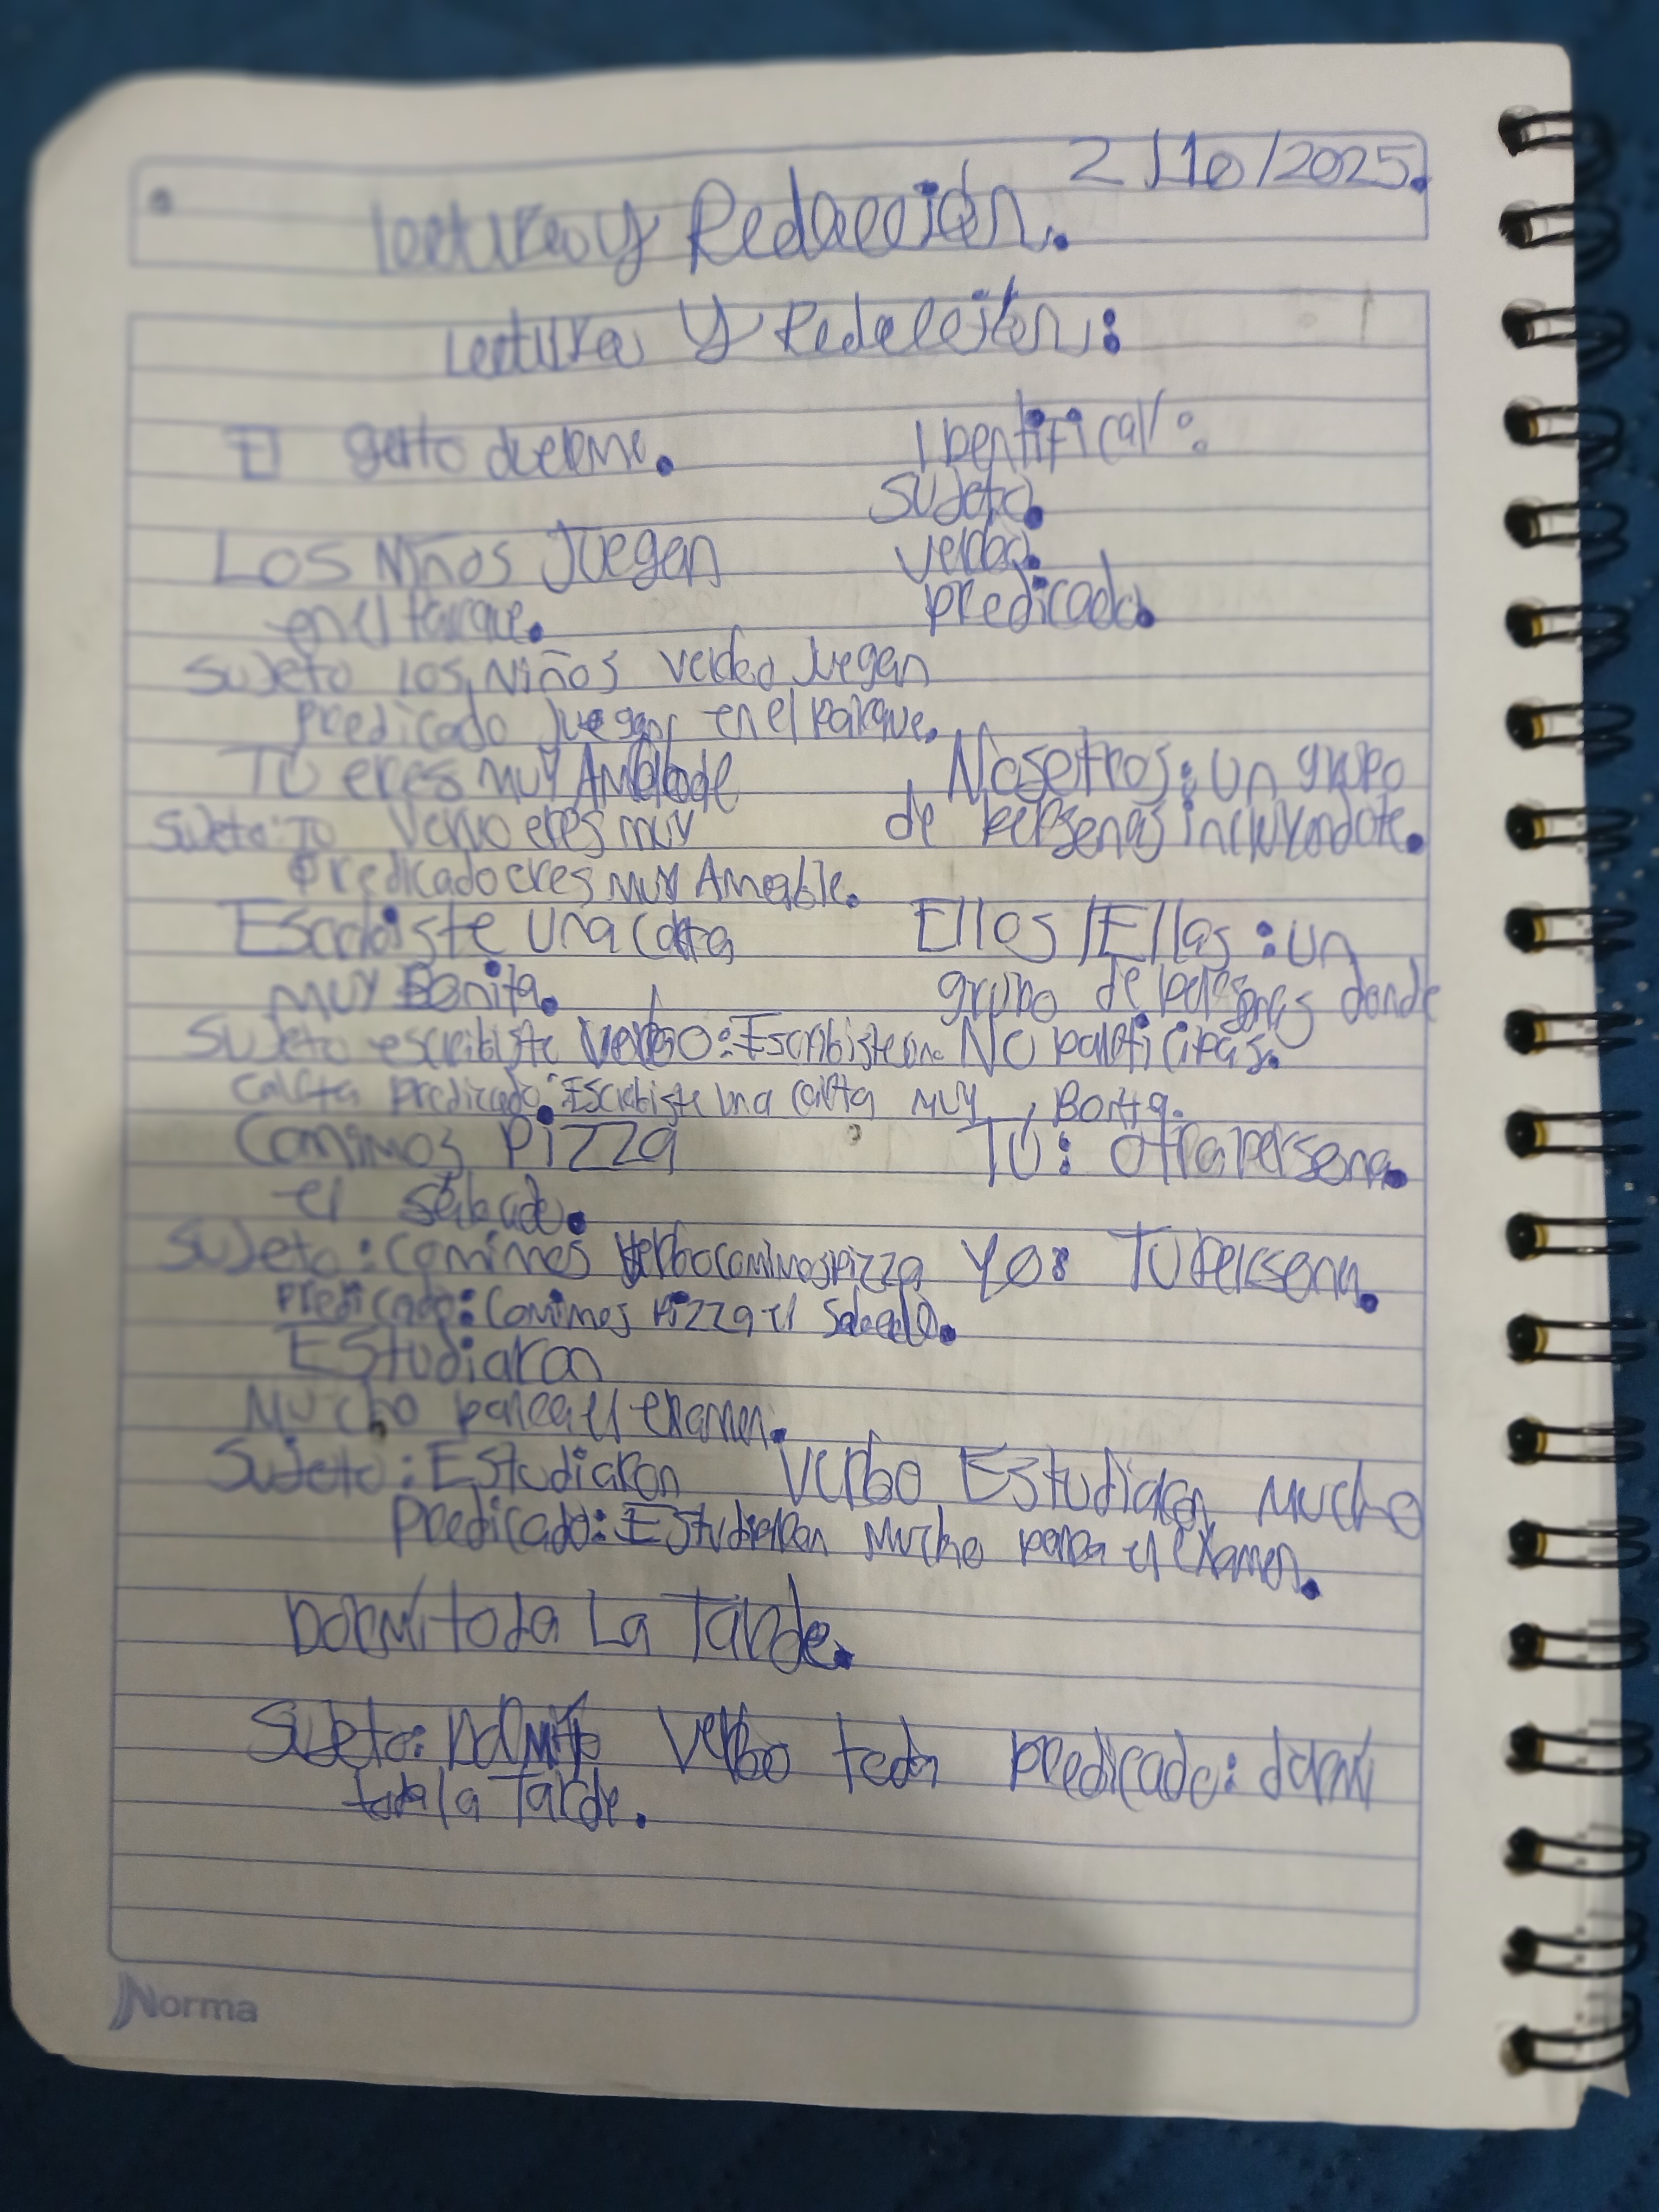 2/10/2025.
Lectura y Redacción.
Lectura y Redacción:
El gato duerme.
Identificar:
Sujeto.
Verbo.
predicado.
Los Niños Juegan
en el parque.
Sujeto Los Niños verbo Juegan
predicado Juegan en el parque.
Tú eres muy Amable
Nosotros: un grupo
de personas incluyondote.
Sujeto: Tú Verbo eres muy
Predicado eres muy Amable.
Escribiste una carta
muy Bonita.
Ellos/Ellas: un
grupo de personas donde
No participas.
Sujeto escribiste verbo: Escribiste una
carta predicado: Escribiste una carta muy Bonita.
Comimos Pizza
el sábado.
Tú: otra persona.
Sujeto: Comimos Verbo comimos pizza
Yo: Tu persona.
Predicado: Comimos Pizza el Sabado.
Estudiaron
Mucho para el examen.
Sujeto: Estudiaron Verbo Estudiaron Mucho
Predicado: Estudiaron Mucho para el examen.
Dormí toda La Tarde.
Sujeto: Dormí Verbo toda predicado: dormí
toda la Tarde.
Norma